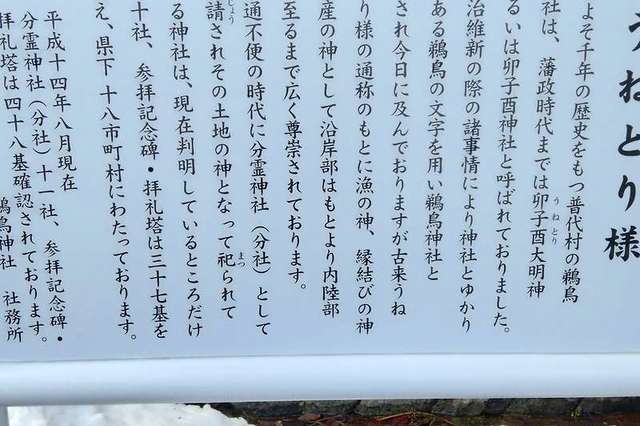 うねとり様
よそ千年の歴史をもつ普代村の鵜鳥
社は、藩政時代までは卯子酉大明神
うねとり
るいは卯子酉神社と呼ばれておりました。
治維新の際の諸事情により神社とゆかり
ある鵜鳥の文字を用い鵜鳥神社と
され今日に及んでおりますが古来うね
り様の通称のもとに漁の神、縁結びの神
産の神として沿岸部はもとより内陸部
至るまで広く尊崇されております。
通不便の時代に分霊神社（分社）として
請されその土地の神となって祀られて
じょう
まつ
る神社は、現在判明しているところだけ
十社、参拝記念碑・拝礼塔は三十七基を
え、県下十八市町村にわたっております。
平成十四年八月現在
分霊神社（分社）十一社、参拝記念碑・
拝礼塔は四十八基確認されております。
鵜鳥神社　社務所